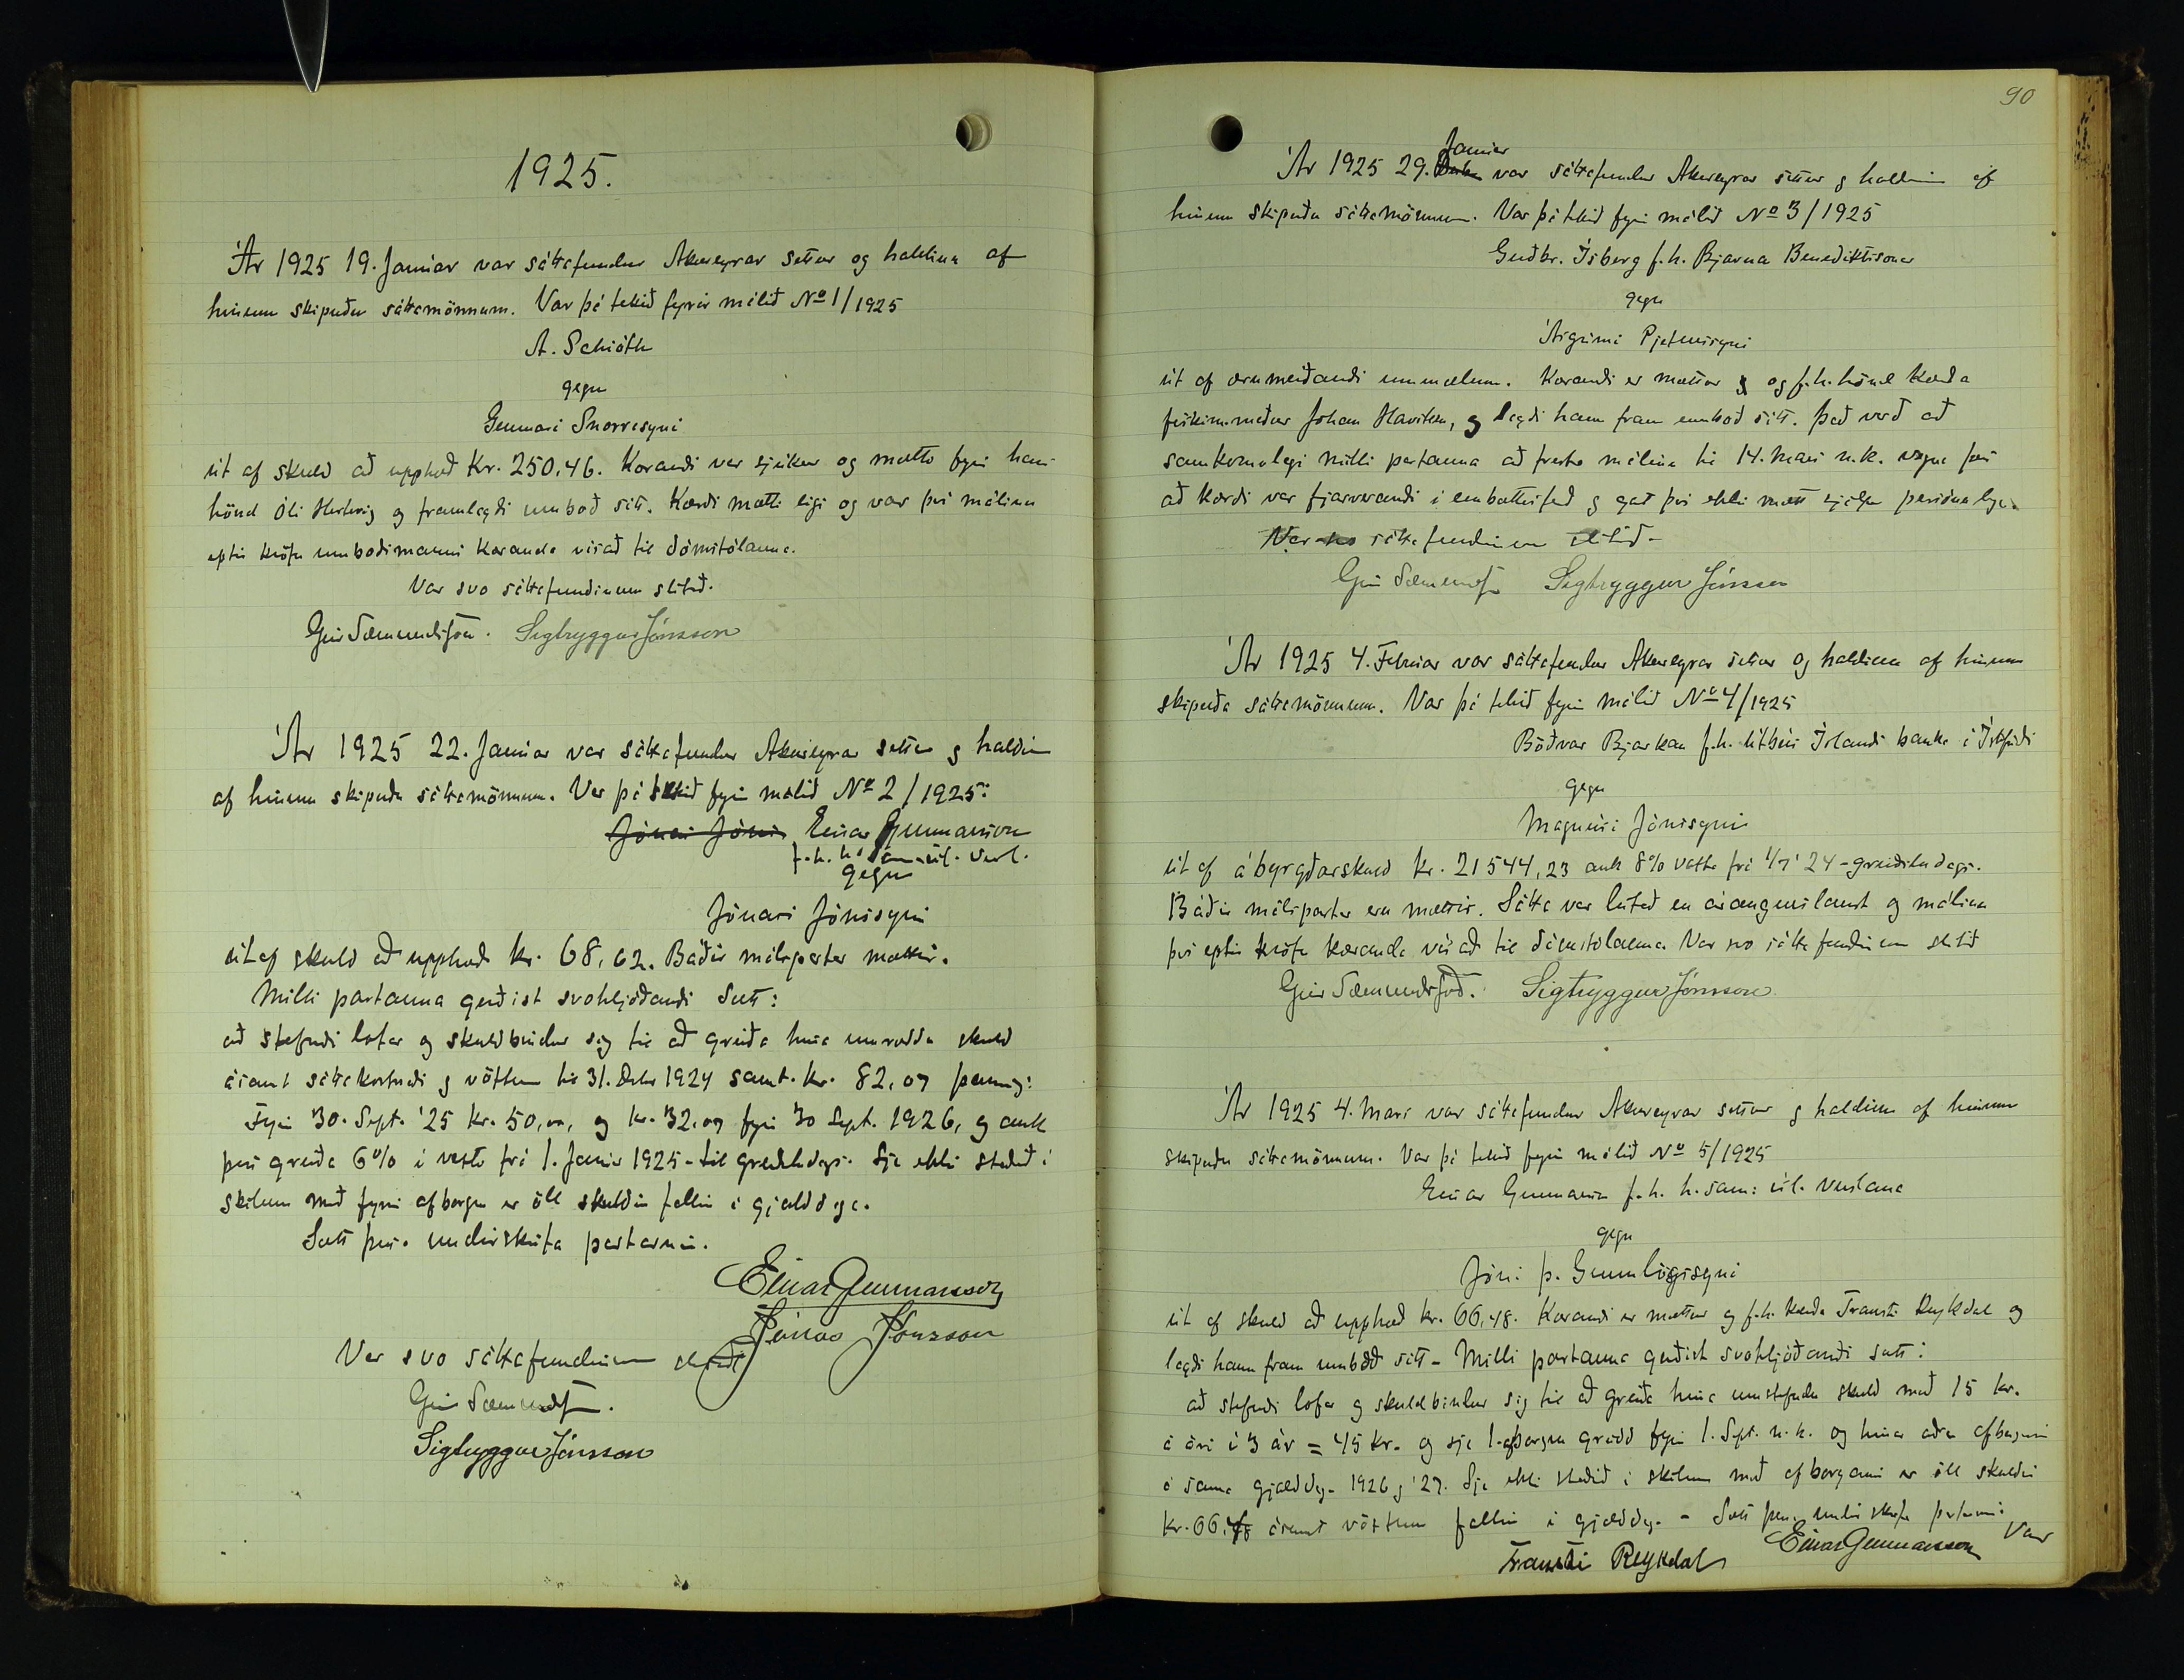 1925.
Ár 1925 19. Janúar var sáttafundur Akureyrar settur og haldinn af
hinum skipuðu sáttamönnum. Var þá tekið fyrir málið No 1/1925
A. Schiöth
gegn
Gunnari Snorrasyni
út af skuld að upphæð Kr. 250,46. Kærandi var sjúkur og mætti fyrir hans
hönd Óli Hertervig og framlagði umboð sitt. Kærði mætti eigi og var því málinu
eptir kröfu umboðsmanns kæranda vísað til dómstólanna.
Var svo sáttafundinum slitið.
Geir Sæmundsson. Sigtryggur Jónsson
Ár 1925 22. Janúar var sáttafundur Akureyrar settur og haldinn
af hinum skipuðu sáttamönnum. Var þá tekið fyrir málið No 2/1925:
Jónas Jónss Einar Gunnarsson
f.h. h. sam. ísl. versl.
gegn
Jónasi Jónssyni
út af skuld að upphæð kr. 68,62. Báðir málspartar mættir.
Milli partanna gerðist svohljóðandi sætt:
að stefndi lofar og skuldbindur sig til að greiða hina umræddu skuld
ásamt sáttakostnaði og vöxtum til 31. Debr 1924 samt. kr. 82,07 þannig:
Fyrir 30. Sept. '25 kr. 50,00, og kr. 32,07 fyrir 30 Sept. 1926, og auk
þess greiða 6% í vexti frá 1. Janúar 1925 - til greiðsludags. Sje ekki staðið í
skilum með fyrri afborgun er öll skuldin fallin í gjalddaga.
Sætt þessa undirskrifa partarnir.
Einar Gunnarsson
Jónas Jónsson
Var svo sáttafundinum slitið
Geir Sæmundsson.
Sigtryggur Jónsson
90
Janúar
Ár 1925 29. var sáttafundur Akureyrar settur og haldinn af
hinum skipuðu sáttamönnum. Var þá tekið fyrir málið No 3/1925
Guðbr. Ísberg f.h. Bjarna Benediktssonar
gegn
Ásgrími Pjeturssyni
út af ærumeiðandi ummælum. Kærandi er mættur og f.h. hönd kærða
fiskimatsmaður Johan Havsteen, og lagði hann fram umboð sitt. Það varð að
samkomulagi milli partanna að fresta málinu til 14. Mars n.k. vegna þess
að kærði var fjarverandi í embættisferð og gat því ekki mætt sjálfur persónulega.
Var svo sáttafundinum slitið -
Geir Sæmundsson Sigtryggur Jónsson
Ár 1925 4. Febrúar var sáttafundur Akureyrar settur og haldinn af hinum
skipuðu sáttamönnum. Var þá tekið fyrir málið No 4/1925
Böðvar Bjarkan f.h. útbús Íslands banka á Ísafirði
gegn
Magnúsi Jónssyni
út af ábyrgðarskuld kr. 21544,23 auk 8% vaxta frá 1/7 '24 - greiðsludags.
Báðir málspartar eru mættir. Sátta var leitað en árangurslaust og málinu
því eptir kröfu kæranda vísað til dómstólanna. Var svo sáttafundinum slitið
Geir Sæmundsson. Sigtryggur Jónsson
Ár 1925 4. Mars var sáttafundur Akureyrar settur og haldinn af hinum
skipuðu sáttamönnum. Var þá tekið fyrir málið No 5/1925
Einar Gunnarsson f.h. h. sam: ísl. verslana
gegn
Jóni Þ. Gunnlögssyni
út af skuld að upphæð kr. 66,48. Kærandi er mættur og f.h. kærða Trausti Reykdal og
lagði hann fram umboð sitt - Milli partanna gerðist svohljóðandi sætt:
að stefndi lofar og skuldbindur sig til að greiða hina umstefndu skuld með 15 kr.
á ári í 3 ár = 45 kr. og sje 1. afborgun greidd fyrir 1. Sept. n.k. og hinar aðrar afborganir
á sama gjalddaga 1926 og '27. Sje ekki staðið í skilum með afborganir er öll skuldin
kr. 66,48 ásamt vöxtum fallin í gjalddaga - Sætt þessa undirskrifa partarnir:
Trausti Reykdal Einar Gunnarsson Var